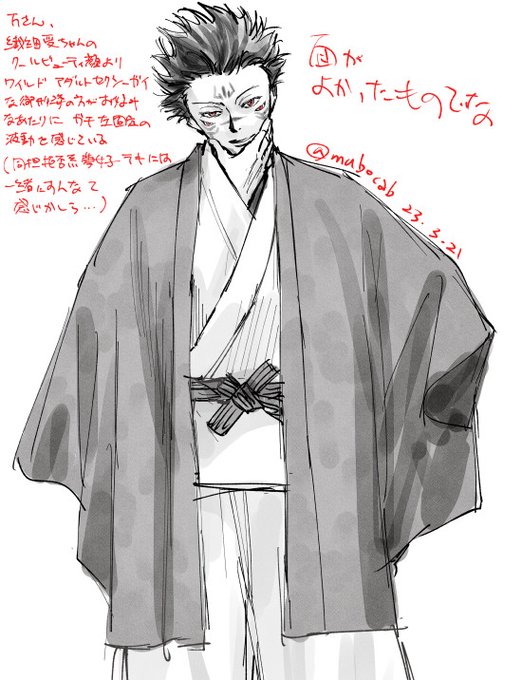 万さん、
繊細愛ちゃんの
クールビューティ顔より
ワイルドアダルトセクシーガイ
な御形姿の方がお好み
なあたりに ガチ
の
波動を感じている
(同担拒否系夢女子
には
一緒にすんなて
感じかしら…)
面が
よかったものでな
@mubocab 23.3.21